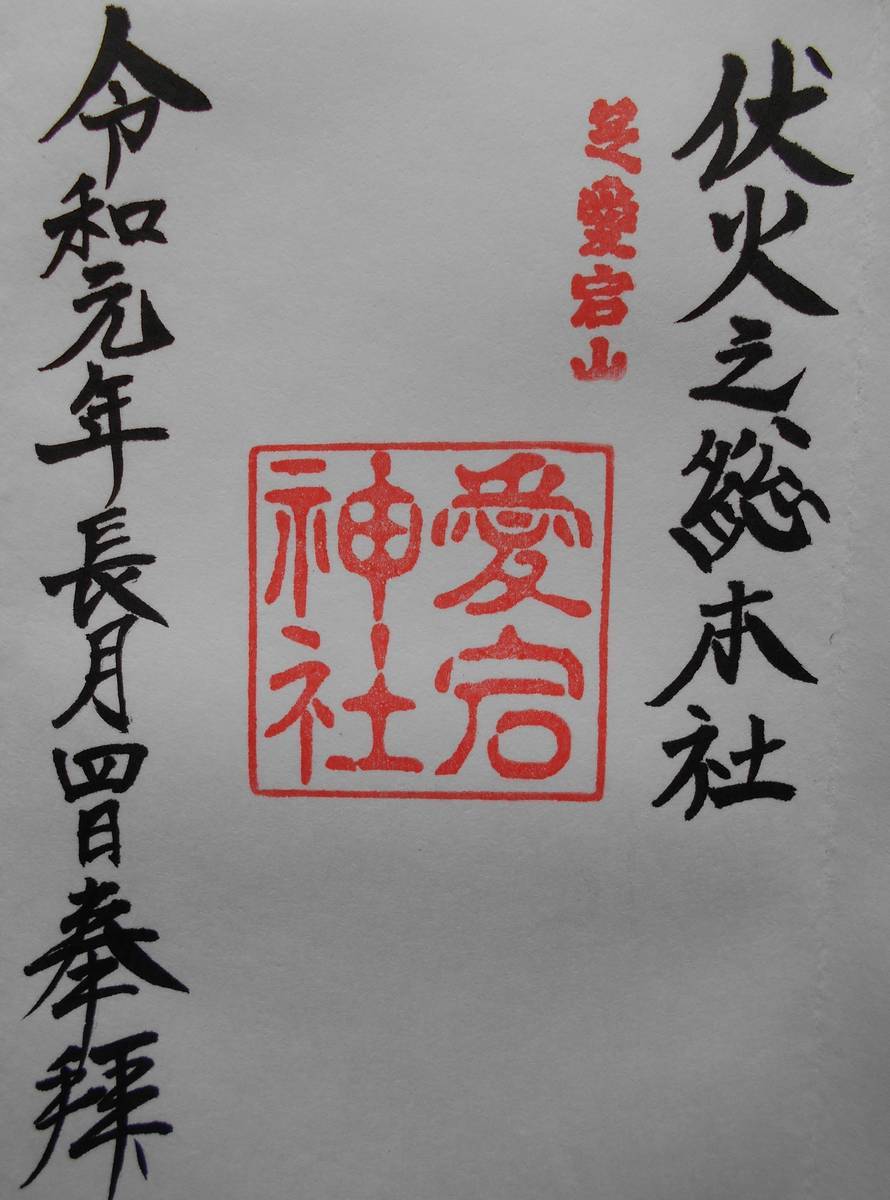 伏火之総本社
芝愛宕山
愛宕
神社
令和元年長月四日奉拝